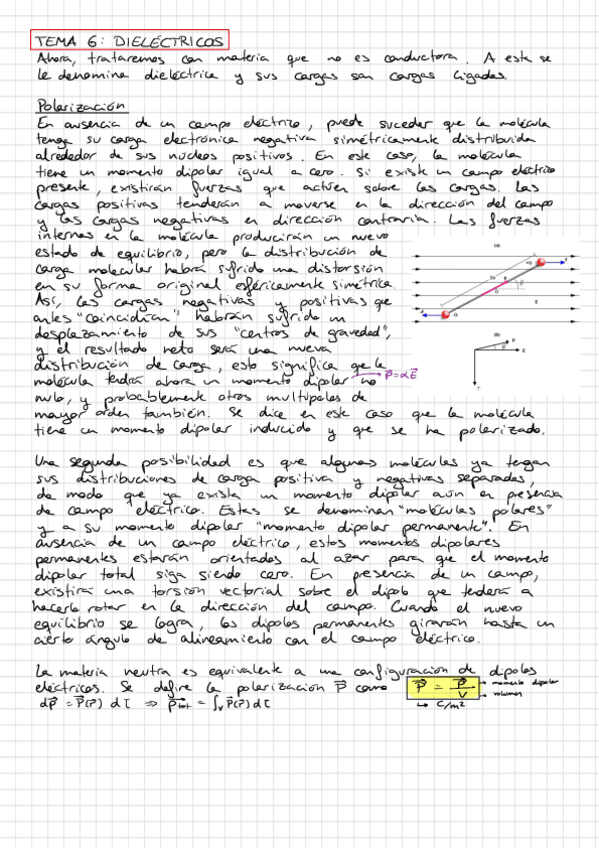 TEMA 6: DIELÉCTRICOS
Ahora, trataremos con materia que no es conductora. A esta se
le denomina dieléctrica y sus cargas son cargas ligadas.
Polarización
En ausencia de un campo eléctrico, puede suceder que la molécula
tenga su carga electrónica negativa simétricamente distribuida
alrededor de sus núcleos positivos. En este caso, la molécula
tiene un momento dipolar igual a cero. Si existe un campo eléctrico
presente, existirán fuerzas que actúen sobre las cargas. Las
cargas positivas tenderán a moverse en la dirección del campo
y las cargas negativas en dirección contraria. Las fuerzas
internas en la molécula producirán un nuevo
estado de equilibrio, pero la distribución de
carga molecular habrá sufrido una distorsión
en su forma original esféricamente simétrica.
Así, las cargas negativas y positivas que
antes "coincidían" habrán sufrido un
desplazamiento de sus "centros de gravedad",
y el resultado neto será una nueva
distribución de carga, esto significa que la
molécula tendrá ahora un momento dipolar no
p⃗=αE⃗
nulo, y probablemente otros multipolos de
mayor orden también. Se dice en este caso que la molécula
tiene un momento dipolar inducido y que se ha polarizado.
(a)
+Q
-Q
2a
E
(b)
P
E
T
Una segunda posibilidad es que algunas moléculas ya tengan
sus distribuciones de carga positiva y negativas separadas,
de modo que ya exista un momento dipolar aún en presencia
de campo eléctrico. Estas se denominan "moléculas polares"
y a su momento dipolar "momento dipolar permanente". En
ausencia de un campo eléctrico, estos momentos dipolares
permanentes estarán orientados al azar para que el momento
dipolar total siga siendo cero. En presencia de un campo,
existirá una torsión vectorial sobre el dipolo que tenderá a
hacerlo rotar en la dirección del campo. Cuando el nuevo
equilibrio se logra, los dipolos permanentes girarán hasta un
cierto ángulo de alineamiento con el campo eléctrico.
La materia neutra es equivalente a una configuración de dipolos
eléctricos. Se define la polarización P⃗ como P⃗ = p⃗/V → momento dipolar → volumen
dp⃗ = P⃗(r⃗) dτ ⇒ p⃗tot = ∫v P⃗(r⃗) dτ ↳ C/m²